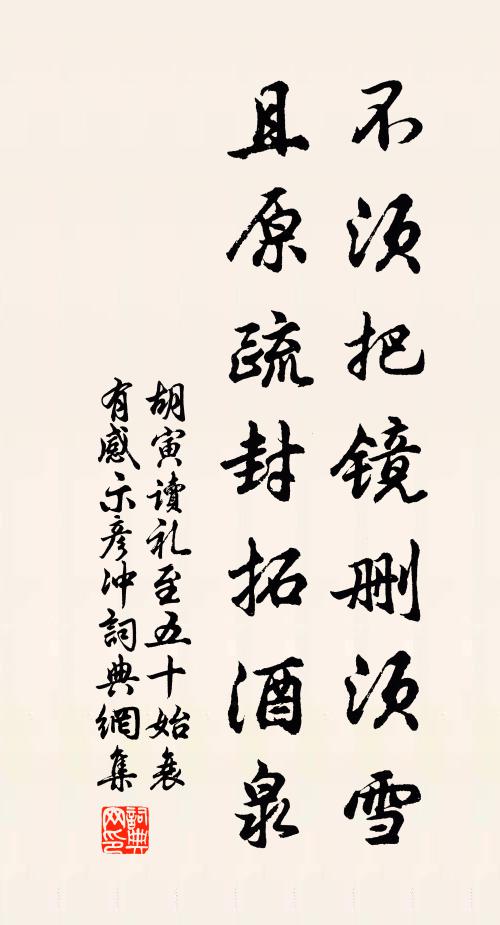 不须把镜删须雪
且原疏封拓酒泉
胡寅讀礼至五十始衰
有感示彦冲詞典網集
詞典网印